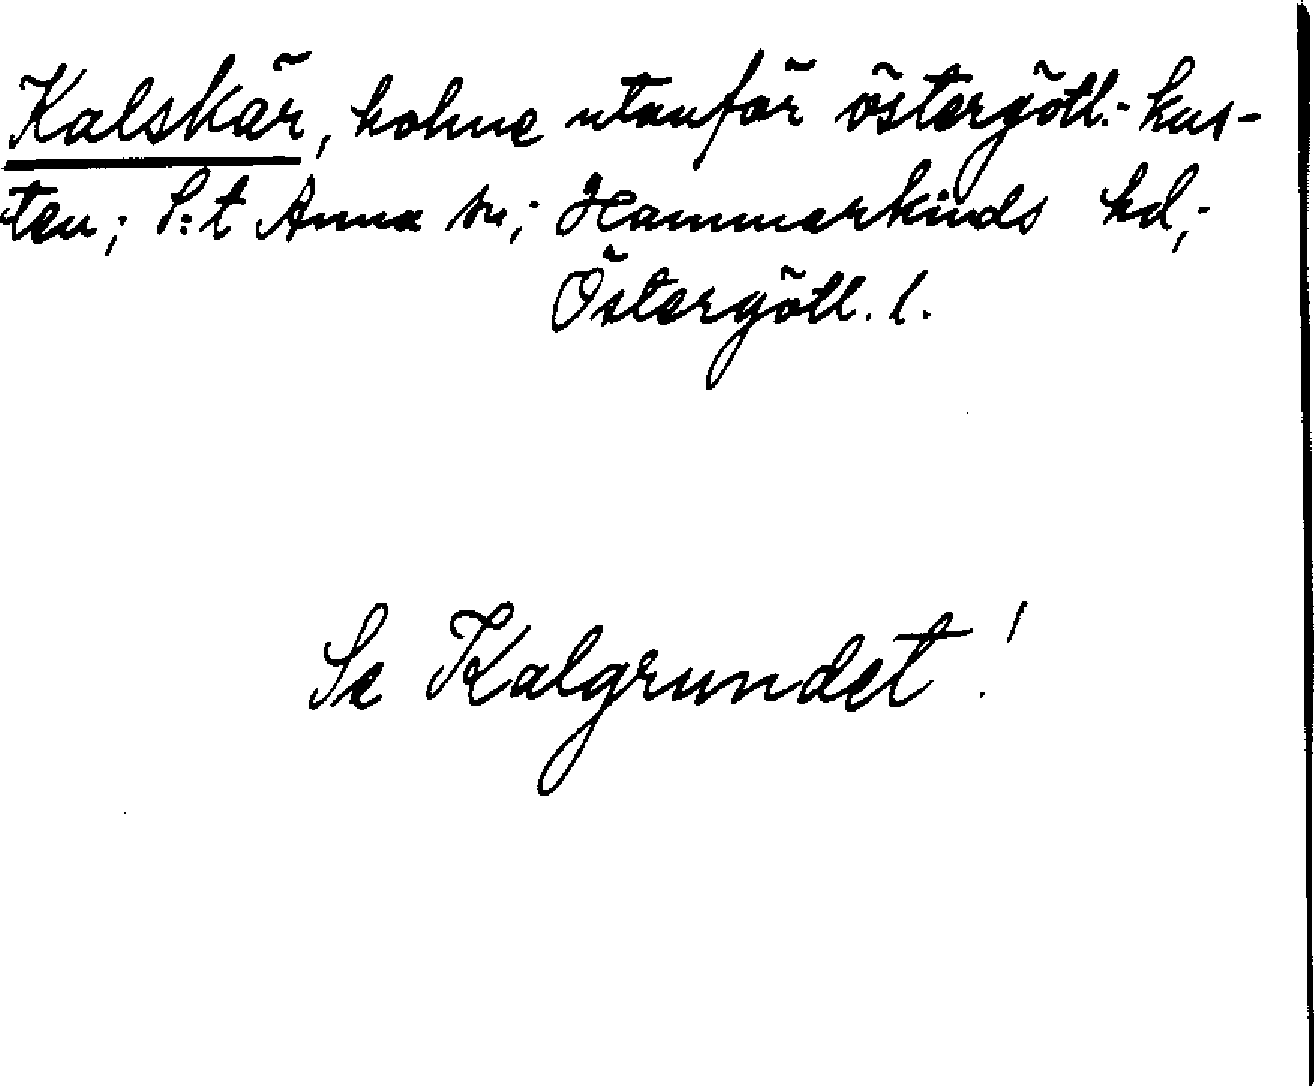 Kalskär, holme utanför östergötl. kus-
ten; S:t Anna sn; Hammarkinds hd;
Östergötl. l.
Se Kalgrundet!